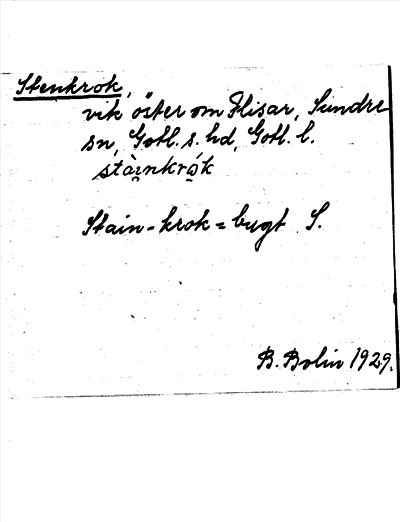 Stenkrok,
vik öster om Flisar, Sundre
sn, Gotl. s. hd, Gotl. l.
stài̯nkrǻk
Stain-krok = bugt S.
B. Bolin 1929.